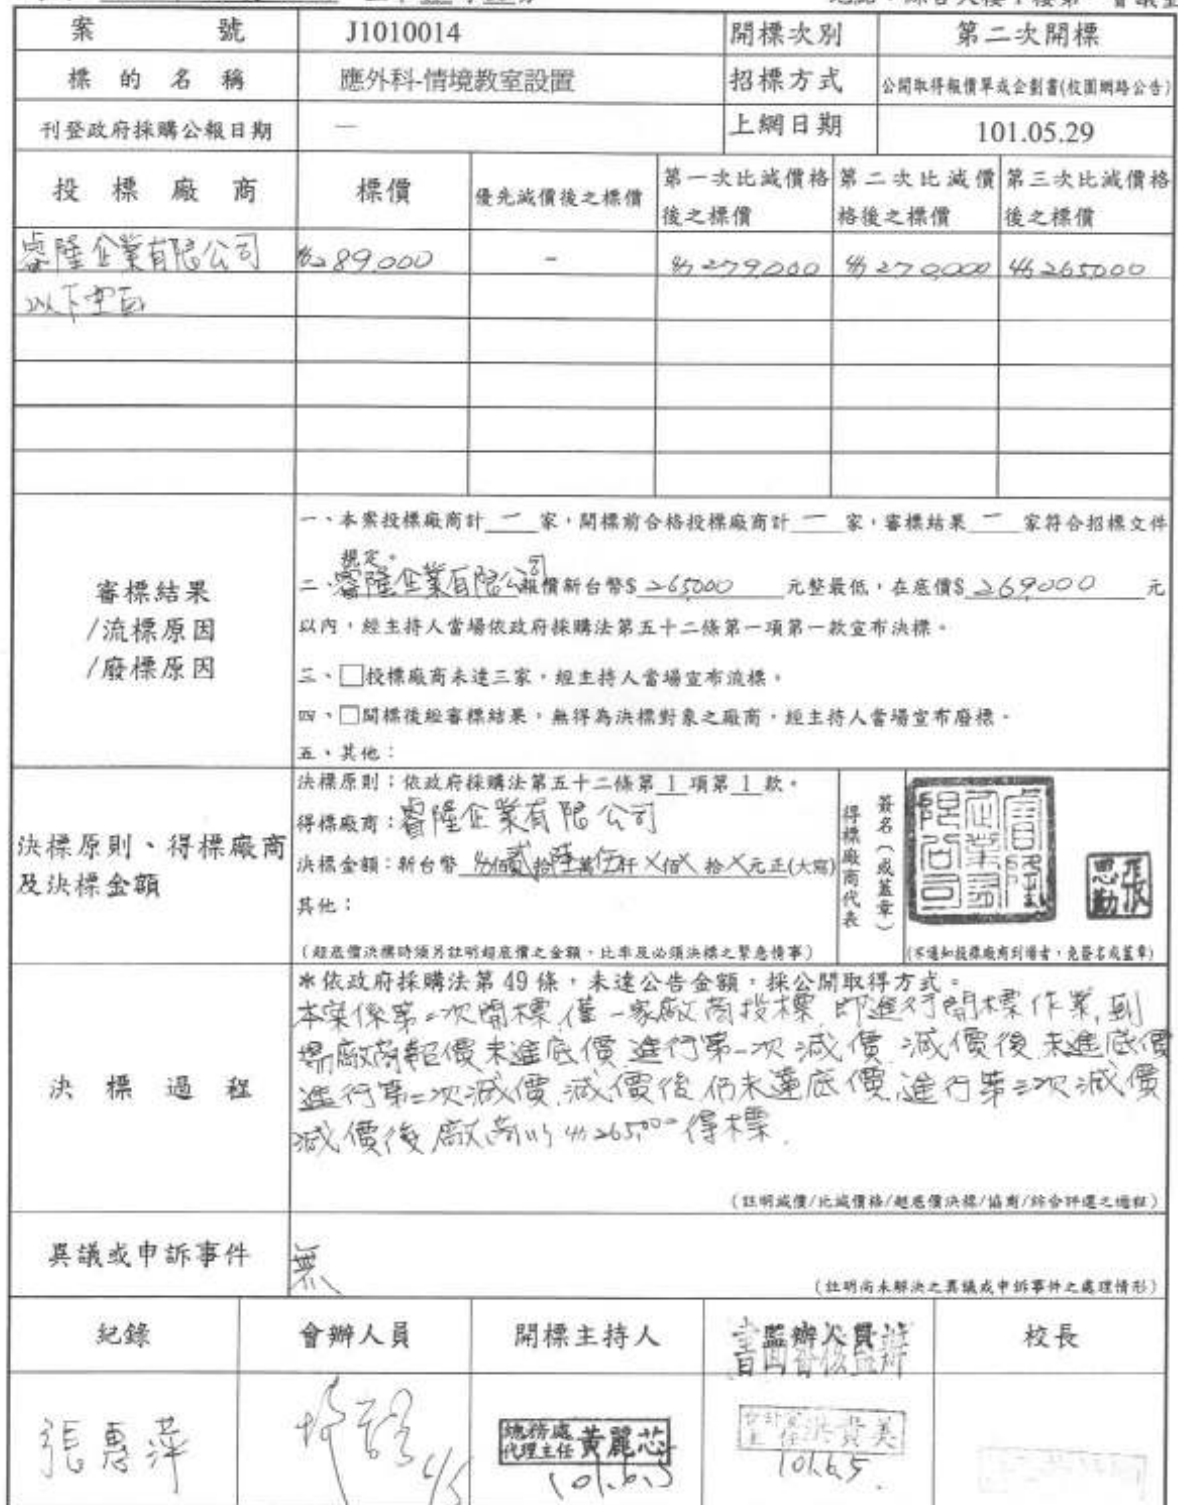 案號 J1010014 開標次別 第二次開標
標的名稱 應外科-情境教室設置 招標方式 公開取得報價單或企劃書(校園網路公告)
刊登政府採購公報日期 — 上網日期 101.05.29
投標廠商 標價 優先減價後之標價 第一次比減價格後之標價 第二次比減價格後之標價 第三次比減價格後之標價
睿隆企業有限公司 289,000 - 279,000 270,000 265,000
以下空白
審標結果
/流標原因
/廢標原因
一、本案投標廠商計 一 家,開標前合格投標廠商計 一 家,審標結果 一 家符合招標文件
規定。
二、睿隆企業有限公司報價新台幣$ 265,000 元整最低,在底價$ 269,000 元
以內,經主持人當場依政府採購法第五十二條第一項第一款宣布決標。
三、□投標廠商未達三家,經主持人當場宣布流標。
四、□開標後經審標結果,無得為決標對象之廠商,經主持人當場宣布廢標。
五、其他:
決標原則、得標廠商
及決標金額
決標原則:依政府採購法第五十二條第 1 項第 1 款。
得標廠商:睿隆企業有限公司
決標金額:新台幣 佰貳拾陸萬伍仟X佰X拾X元正(大寫)
其他:
(超底價決標時須另註明超底價之金額、比率及必須決標之緊急情事)
得標廠商代表
簽名(或蓋章)
睿隆企業有限公司
張思勤
(不通知投標廠商到場者,免簽名或蓋章)
決標過程
*依政府採購法第49條,未達公告金額,採公開取得方式。
本案係第二次開標,僅一家廠商投標,即進行開標作業,到
場廠商報價未進底價,進行第一次減價,減價後未進底價
進行第二次減價,減價後仍未達底價,進行第三次減價
減價後廠商以265,000得標.
(註明減價/比減價格/超底價決標/協商/綜合評選之過程)
異議或申訴事件 無
(註明尚未解決之異議或申訴事件之處理情形)
紀錄 會辦人員 開標主持人 監辦人員 校長
書面審核監辦
張惠萍
6/5
總務處代理主任 黃麗芯
101.6.5
洪貴美
101.6.5.